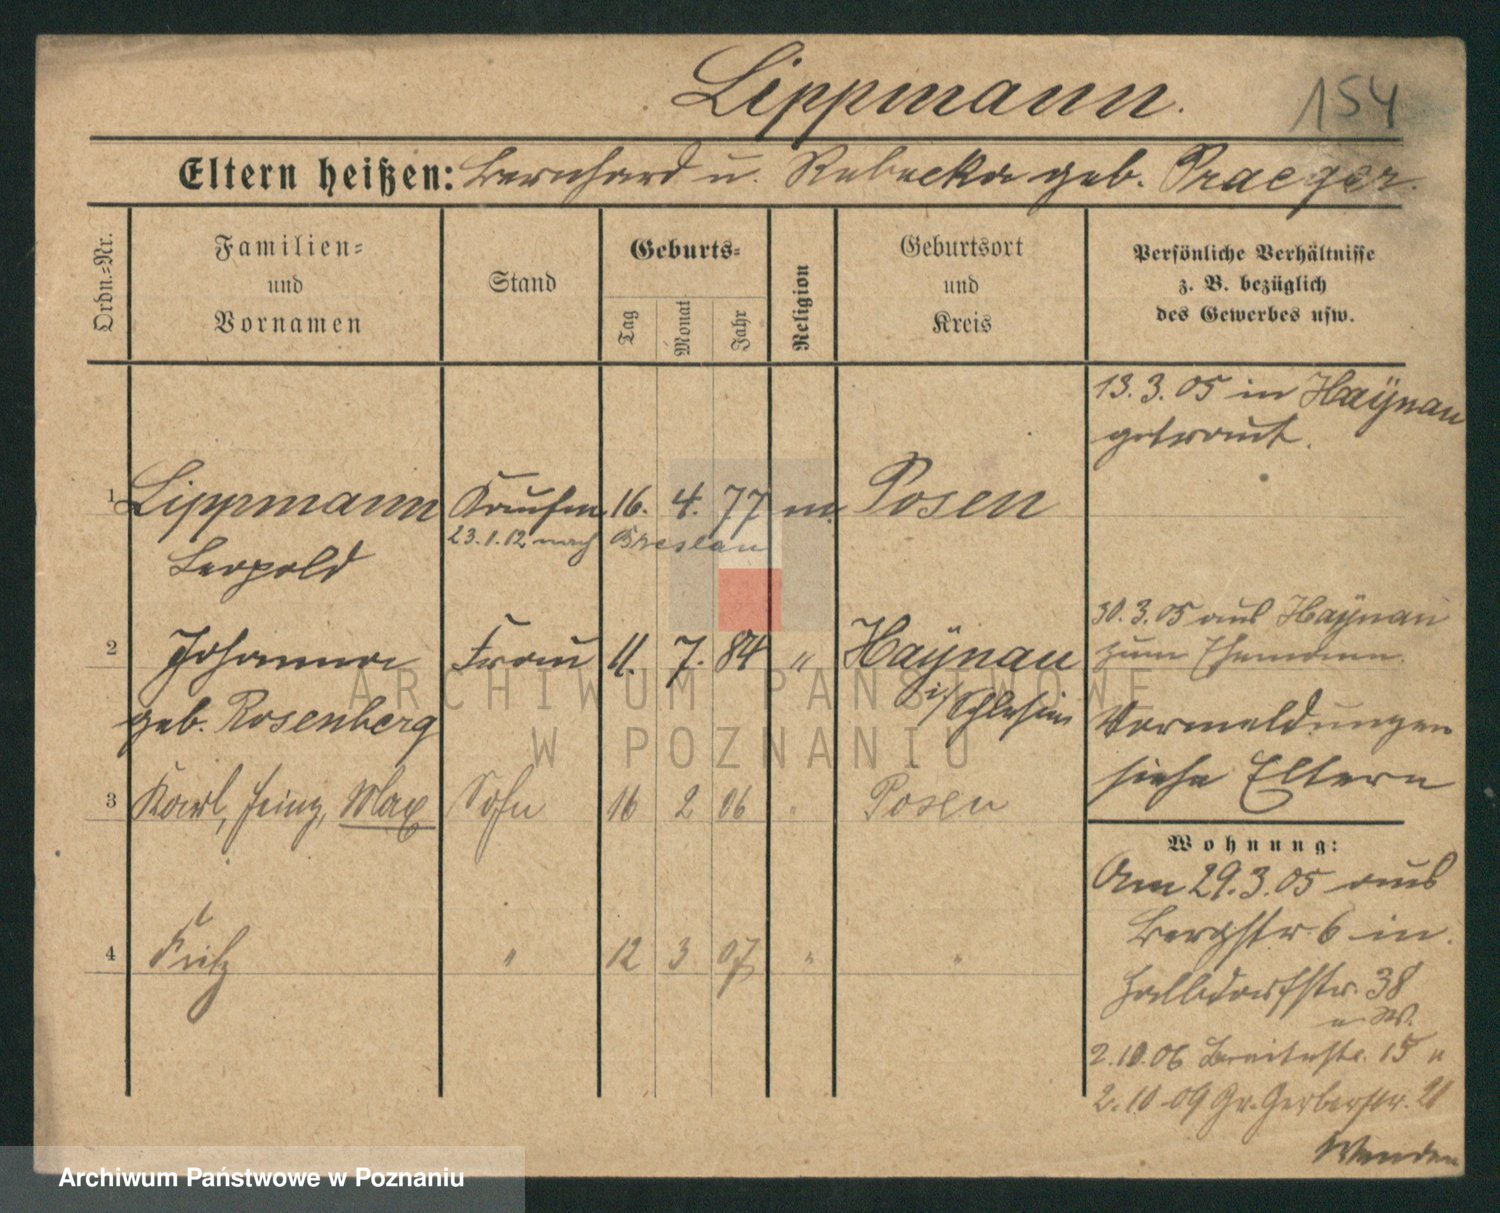 Lippmann.
154
Eltern heißen: Bernhard u. Rebecka geb. Praeger.
Ordn.=Nr.
Familien=
und
Vornamen
Stand
Geburts=
Tag
Monat
Jahr
Religion
Geburtsort
und
Kreis
Persönliche Verhältnisse
z. B. bezüglich
des Gewerbes usw.
13. 3. 05 in Haÿnau
getraut.
1 Lippmann Kaufm 16. 4. 77 m. Posen
23.1.12 nach Breslau
Leopold
30. 3. 05 aus Haÿnau
2 Johanna Frau 11. 7. 84 " Haÿnau
zum Ehemann.
geb. Rosenberg
i/Schlesien
Vormeldungen
siehe Eltern
3 Karl, Heinz, Max Sohn 16 2 06 " Posen
Wohnung:
Am 29. 3. 05 aus
Bergstr. 6 in
4 Fritz " 12 3 07 " "
Halbdorfstr. 38
2.10.06 Breitestr. 15 u
2.10.09 Gr. Gerberstr. 21
Wenden
ARCHIWUM PAŃSTWOWE
W POZNANIU
Archiwum Państwowe w Poznaniu